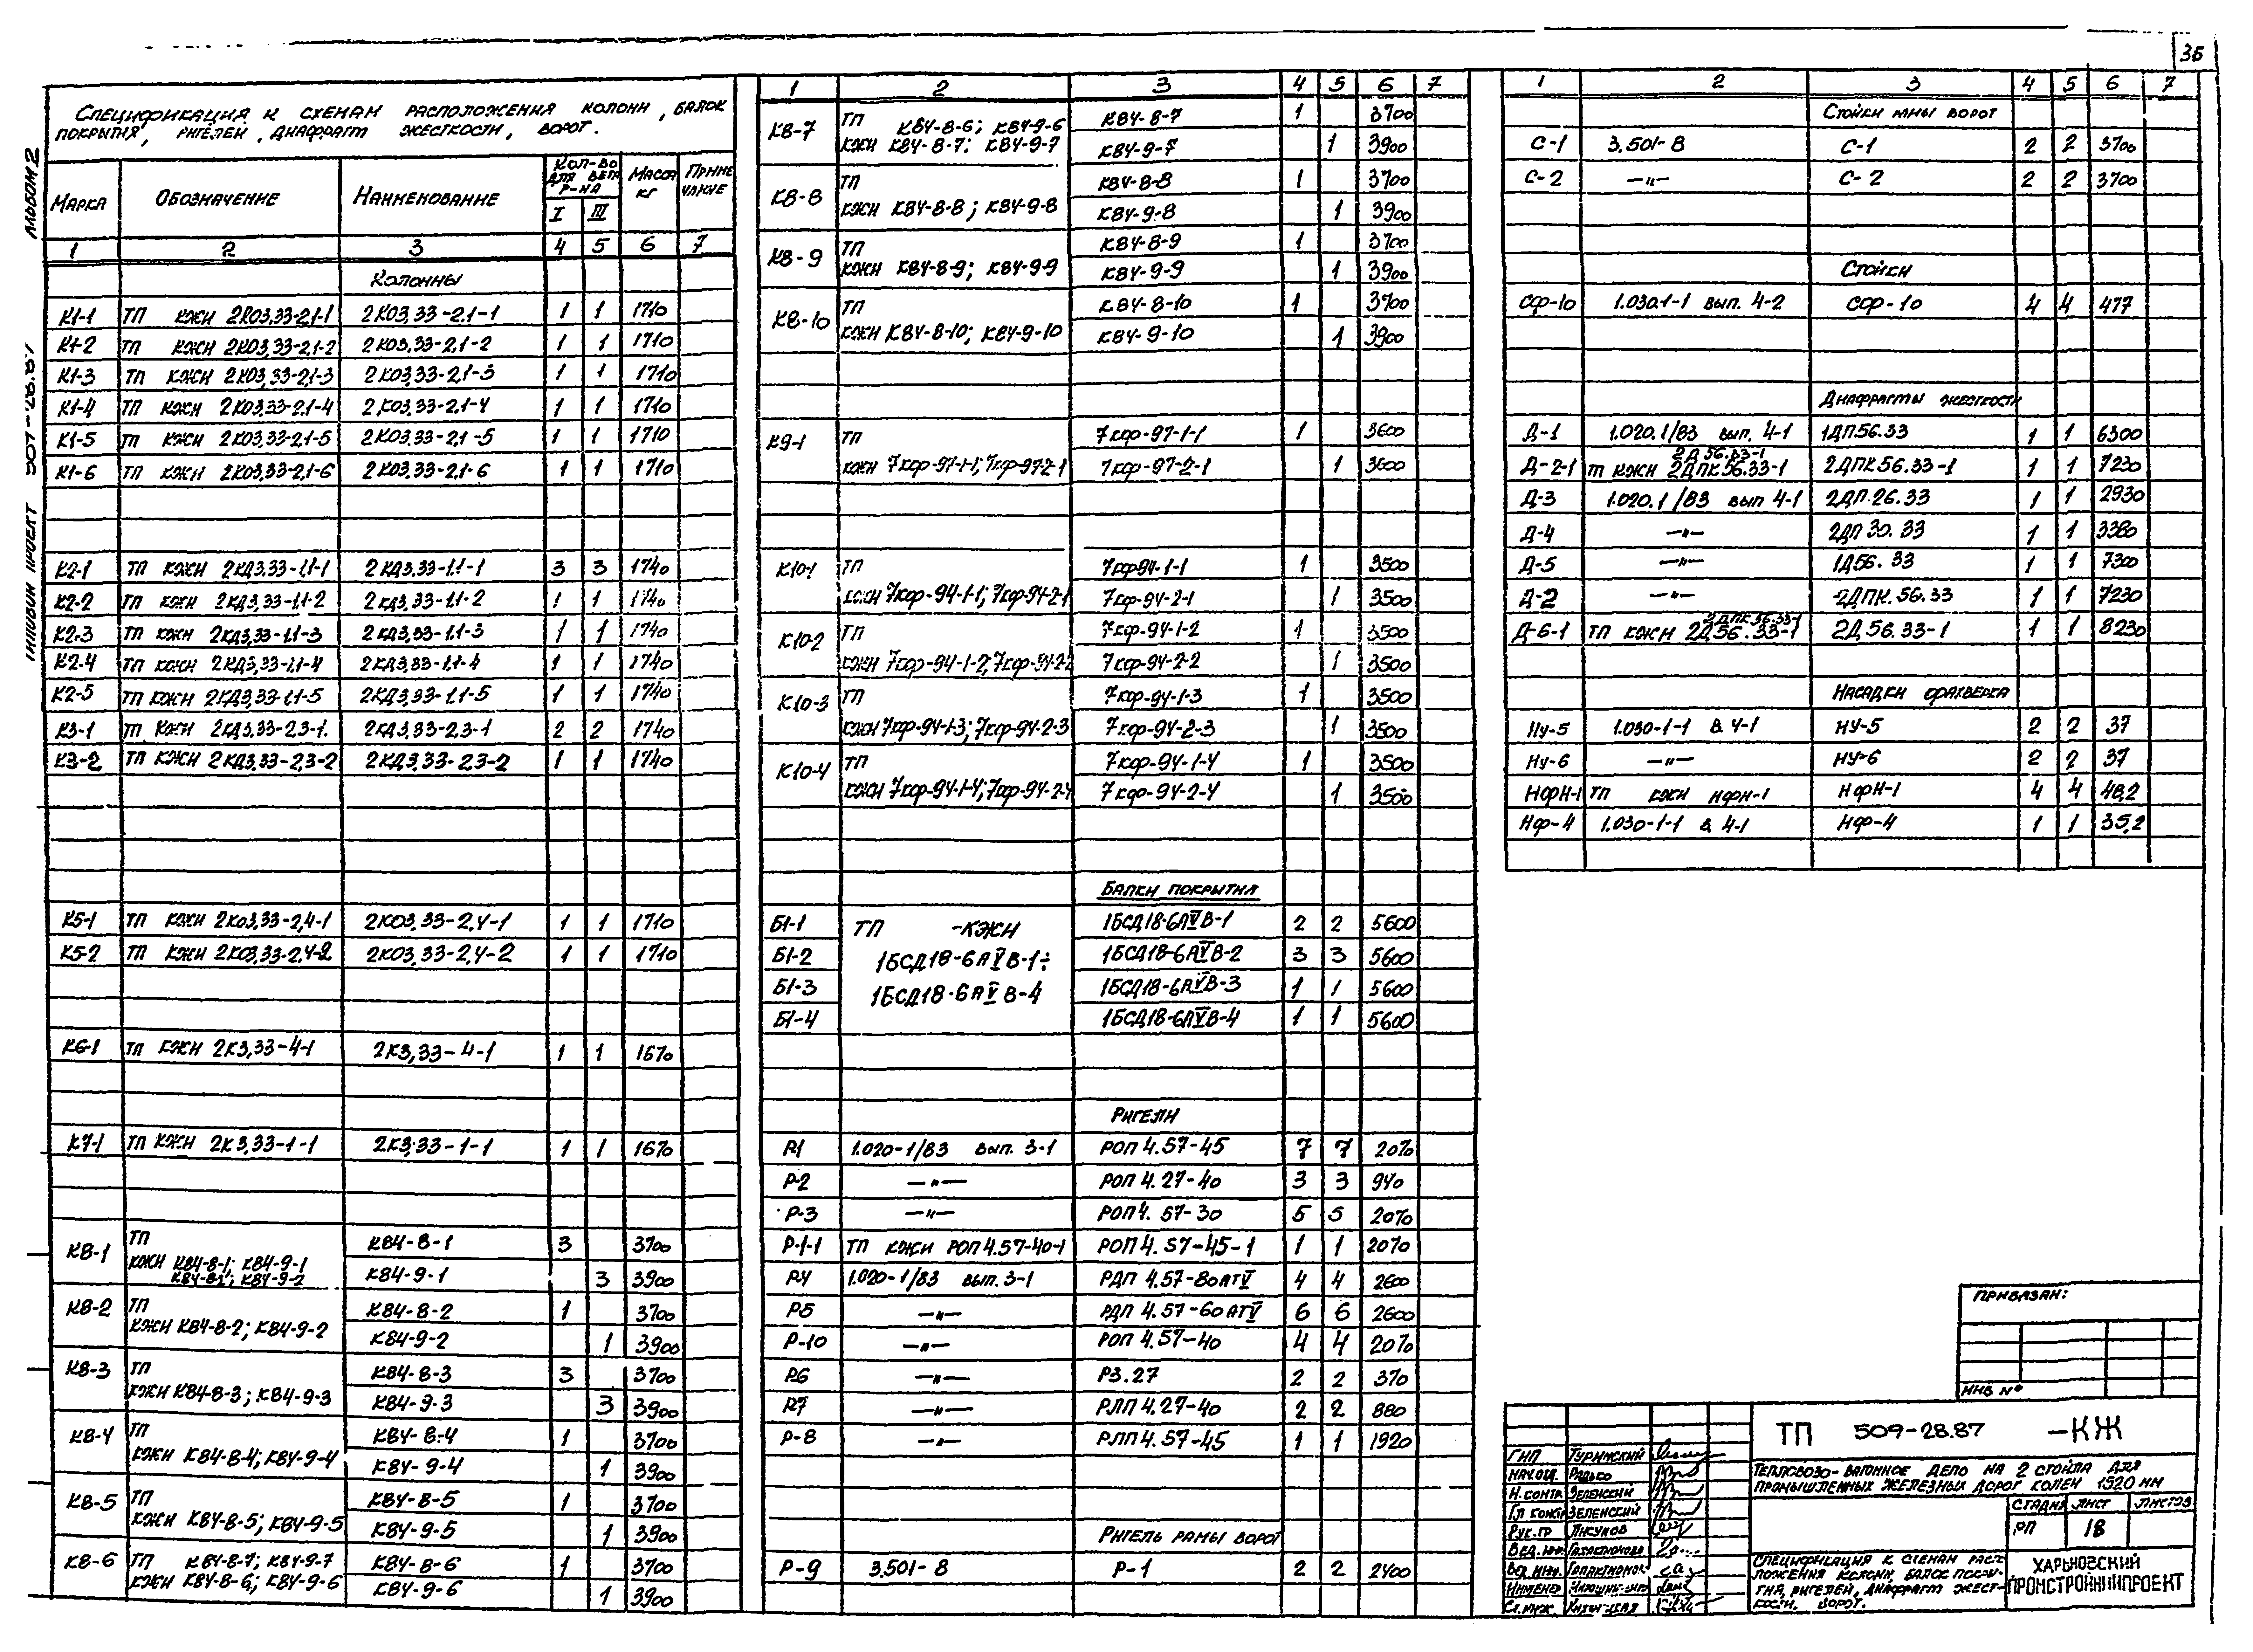 35
Альбом 2
Типовой проект 509-28.87
Спецификация к схемам расположения колонн, балок
покрытия, ригелей, диафрагм жесткости, ворот.
Марка | Обозначение | Наименование | Кол-во для ветр. р-на I | III | Масса кг | Приме чание
1 2 3 4 5 6 7
Колонны
К1-1 ТП КЖИ 2КО3,33-2,1-1 2КО3,33-2,1-1 1 1 1710
К1-2 ТП КЖИ 2КО3,33-2,1-2 2КО3,33-2,1-2 1 1 1710
К1-3 ТП КЖИ 2КО3,33-2,1-3 2КО3,33-2,1-3 1 1 1710
К1-4 ТП КЖИ 2КО3,33-2,1-4 2КО3,33-2,1-4 1 1 1710
К1-5 ТП КЖИ 2КО3,33-2,1-5 2КО3,33-2,1-5 1 1 1710
К1-6 ТП КЖИ 2КО3,33-2,1-6 2КО3,33-2,1-6 1 1 1710
К2-1 ТП КЖИ 2КД3.33-1,1-1 2КД3.33-1,1-1 3 3 1740
К2-2 ТП КЖИ 2КД3,33-1,1-2 2КД3,33-1,1-2 1 1 1740
К2-3 ТП КЖИ 2КД3,33-1,1-3 2КД3,33-1,1-3 1 1 1740
К2-4 ТП КЖИ 2КД3,33-1,1-4 2КД3,33-1,1-4 1 1 1740
К2-5 ТП КЖИ 2КД3,33-1,1-5 2КД3,33-1,1-5 1 1 1740
К3-1 ТП КЖИ 2КД3,33-2,3-1. 2КД3,33-2,3-1 2 2 1740
К3-2 ТП КЖИ 2КД3,33-2,3-2 2КД3,33-2,3-2 1 1 1740
К5-1 ТП КЖИ 2КО3,33-2,4-1 2КО3,33-2,4-1 1 1 1710
К5-2 ТП КЖИ 2КО3,33-2,4-2 2КО3,33-2,4-2 1 1 1710
К6-1 ТП КЖИ 2К3,33-4-1 2К3,33-4-1 1 1 1670
К7-1 ТП КЖИ 2К3,33-1-1 2К3,33-1-1 1 1 1670
К8-1 ТП К84-8-1 3 3700
КЖИ К84-8-1; К84-9-1 К84-9-1 3 3900
К84-8-2; К84-9-2
К8-2 ТП К84-8-2 1 3700
КЖИ К84-8-2; К84-9-2 К84-9-2 1 3900
К8-3 ТП К84-8-3 3 3700
КЖИ К84-8-3; К84-9-3 К84-9-3 3 3900
К8-4 ТП К84-8-4 1 3700
КЖИ К84-8-4; К84-9-4 К84-9-4 1 3900
К8-5 ТП К84-8-5 1 3700
КЖИ К84-8-5; К84-9-5 К84-9-5 1 3900
К8-6 ТП К84-8-7; К84-9-7 К84-8-6 1 3700
КЖИ К84-8-6; К84-9-6 К84-9-6 1 3900
1 2 3 4 5 6 7
К8-7 ТП К84-8-6; К84-9-6 К84-8-7 1 3700
КЖИ К84-8-7; К84-9-7 К84-9-7 1 3900
К8-8 ТП К84-8-8 1 3700
КЖИ К84-8-8; К84-9-8 К84-9-8 1 3900
К8-9 ТП К84-8-9 1 3700
КЖИ К84-8-9; К84-9-9 К84-9-9 1 3900
К8-10 ТП К84-8-10 1 3700
КЖИ К84-8-10; К84-9-10 К84-9-10 1 3900
К9-1 ТП 7кф-97-1-1 1 3600
КЖИ 7кф-97-1-1; 7кф-97-2-1 7кф-97-2-1 1 3600
К10-1 ТП 7кф94-1-1 1 3500
КЖИ 7кф-94-1-1; 7кф-94-2-1 7кф-94-2-1 1 3500
К10-2 ТП 7кф-94-1-2 1 3500
КЖИ 7кф-94-1-2; 7кф-94-2-2 7кф-94-2-2 1 3500
К10-3 ТП 7кф-94-1-3 1 3500
КЖИ 7кф-94-1-3; 7кф-94-2-3 7кф-94-2-3 1 3500
К10-4 ТП 7кф-94-1-4 1 3500
КЖИ 7кф-94-1-4; 7кф-94-2-4 7кф-94-2-4 1 3500
Балки покрытия
Б1-1 ТП -КЖИ 1БСД18-6АVВ-1 2 2 5600
Б1-2 1БСД18-6АVВ-1÷ 1БСД18-6АVВ-2 3 3 5600
Б1-3 1БСД18-6АVВ-4 1БСД18-6АVВ-3 1 1 5600
Б1-4 1БСД18-6АVВ-4 1 1 5600
Ригели
Р1 1.020-1/83 вып. 3-1 РОП 4.57-45 7 7 2070
Р-2 —"— РОП 4.27-40 3 3 940
Р-3 —"— РОП 4.57-30 5 5 2070
Р-1-1 ТП КЖИ РОП 4.57-40-1 РОП 4.57-45-1 1 1 2070
Р4 1.020-1/83 вып. 3-1 РДП 4.57-80АТV 4 4 2600
Р5 —"— РДП 4.57-60АТV 6 6 2600
Р-10 —"— РОП 4.57-40 4 4 2070
Р6 —"— Р3.27 2 2 370
Р7 —"— РЛП 4.27-40 2 2 880
Р-8 —"— РЛП 4.57-45 1 1 1920
Ригель рамы ворот
Р-9 3.501-8 Р-1 2 2 2400
1 2 3 4 5 6 7
Стойки рамы ворот
С-1 3.501-8 С-1 2 2 3700
С-2 —"— С-2 2 2 3700
Стойки
СФ-10 1.030.1-1 вып. 4-2 СФ-10 4 4 477
Диафрагмы жесткости
Д-1 1.020.1/83 вып. 4-1 1ДП56.33 1 1 6300
2Д56.33-1
Д-2-1 ТП КЖИ 2ДПК56.33-1 2ДПК56.33-1 1 1 7230
Д-3 1.020.1/83 вып 4-1 2ДП.26.33 1 1 2930
Д-4 —"— 2ДП 30.33 1 1 3380
Д-5 —"— 1Д56.33 1 1 7300
Д-2 —"— 2ДПК.56.33 1 1 7230
2ДПК56.33-1
Д-6-1 ТП КЖИ 2Д56.33-1 2Д56.33-1 1 1 8230
Насадки фахверка
НУ-5 1.030-1-1 в 4-1 НУ-5 2 2 37
НУ-6 —"— НУ-6 2 2 37
НФН-1 ТП КЖИ НФН-1 НФН-1 4 4 48,2
НФ-4 1.030-1-1 в 4-1 НФ-4 1 1 35,2
Привязан:
Инв №
ТП 509-28.87 -КЖ
ГИП Туринский
Нач.отд. Радько
Н.контр Зеленский
Гл констр Зеленский
Рук.гр Пискунов
Вед.инж.
Вед.инж.
Инженер
Ст.инж.
Тепловозо-вагонное депо на 2 стойла для
промышленных железных дорог колеи 1520 мм
Стадия Лист Листов
РП 18
Спецификация к схемам распо-
ложения колонн, балок покры-
тия, ригелей, диафрагм жест-
кости, ворот.
Харьковский
Промстройниипроект